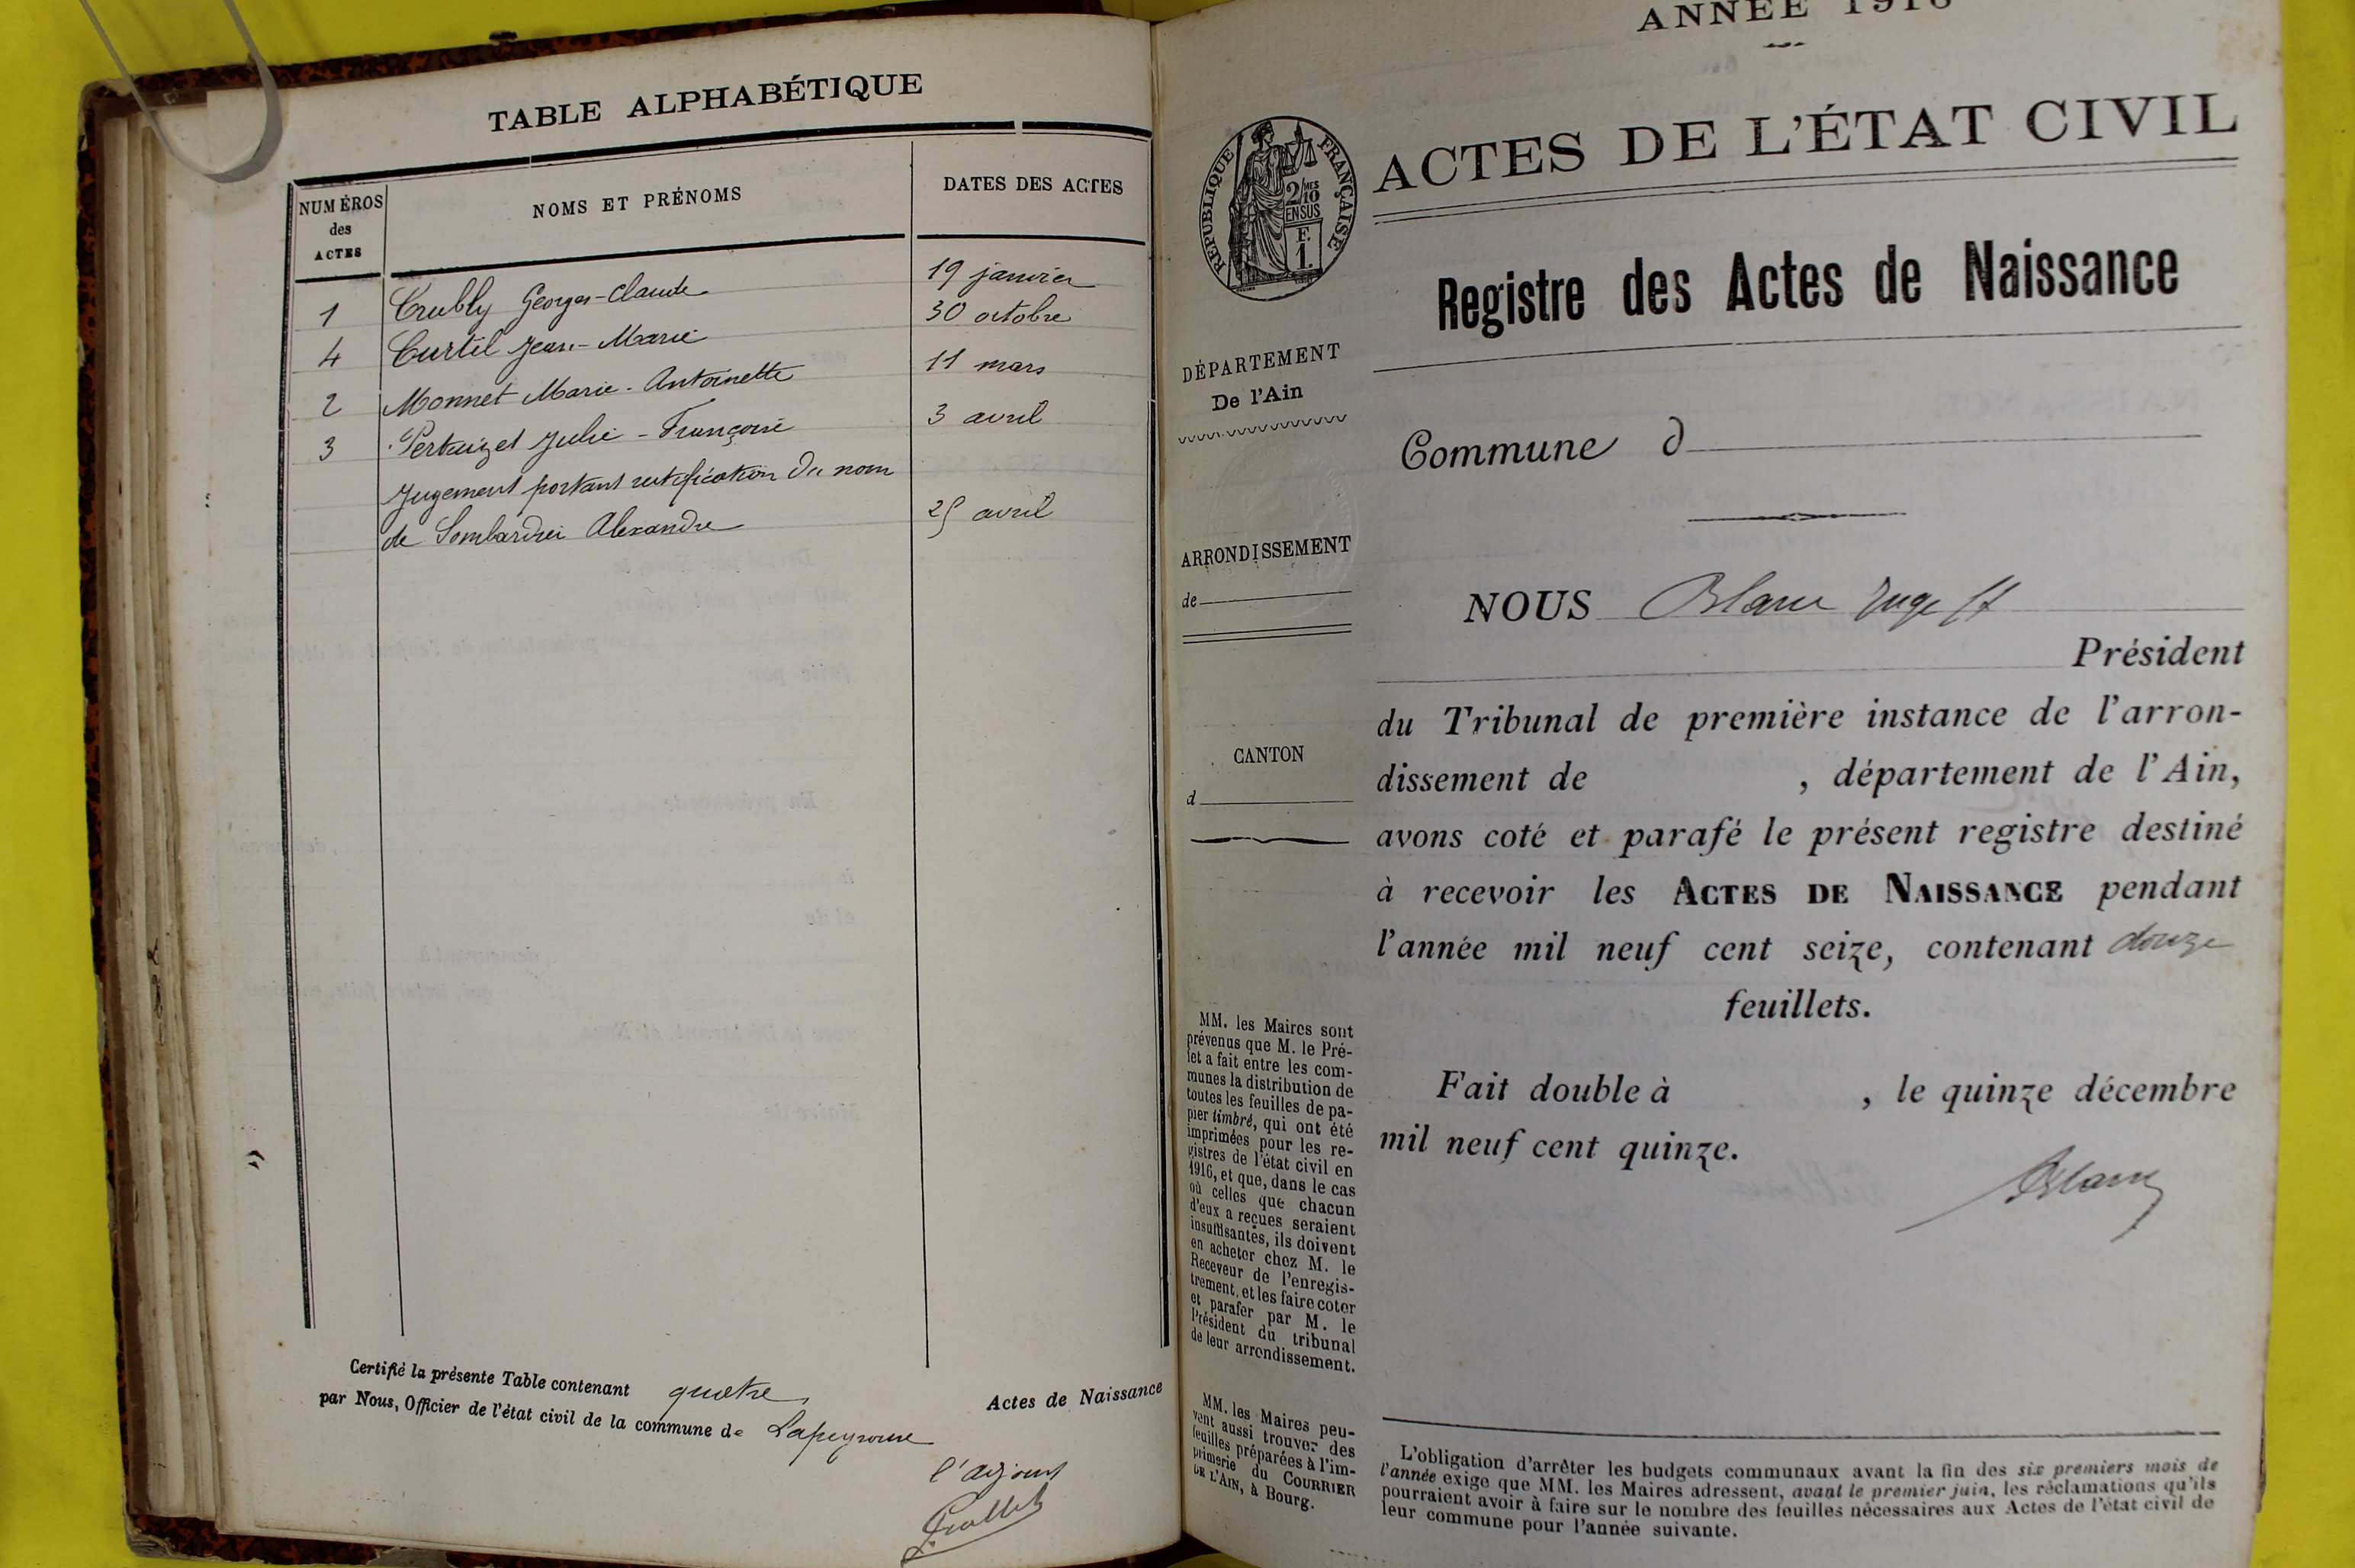 TABLE ALPHABÉTIQUE
NUMÉROS
des
ACTES
NOMS ET PRÉNOMS
DATES DES ACTES
1 Crubly Georges-Claude 19 janvier
4 Curtil Jean-Marie 30 octobre
2 Monnet Marie-Antoinette 11 mars
3 Pertuizet Julie-Françoise 3 avril
Jugement portant rectification du nom
de Lombardei Alexandre 25 avril
Certifié la présente Table contenant quatre Actes de Naissance
par Nous, Officier de l'état civil de la commune de Lapeyrouse
l'adjoint
ANNÉE 1916
RÉPUBLIQUE FRANÇAISE
2/10MES
EN SUS
F.
1.
ACTES DE L'ÉTAT CIVIL
Registre des Actes de Naissance
DÉPARTEMENT
De l'Ain
Commune d
ARRONDISSEMENT
de
CANTON
d
NOUS Blanc Juge
Président
du Tribunal de première instance de l'arron-
dissement de , département de l'Ain,
avons coté et parafé le présent registre destiné
à recevoir les ACTES DE NAISSANCE pendant
l'année mil neuf cent seize, contenant douze
feuillets.
Fait double à , le quinze décembre
mil neuf cent quinze.
Blanc
MM. les Maires sont
prévenus que M. le Pré-
fet a fait entre les com-
munes la distribution de
toutes les feuilles de pa-
pier timbré, qui ont été
imprimées pour les re-
gistres de l'état civil en
1916, et que, dans le cas
où celles que chacun
d'eux a reçues seraient
insuffisantes, ils doivent
en acheter chez M. le
Receveur de l'enregis-
trement, et les faire coter
et parafer par M. le
Président du tribunal
de leur arrondissement.
MM. les Maires peu-
vent aussi trouver des
feuilles préparées à l'im-
primerie du COURRIER
DE L'AIN, à Bourg.
L'obligation d'arrêter les budgets communaux avant la fin des six premiers mois de
l'année exige que MM. les Maires adressent, avant le premier juin, les réclamations qu'ils
pourraient avoir à faire sur le nombre des feuilles nécessaires aux Actes de l'état civil de
leur commune pour l'année suivante.